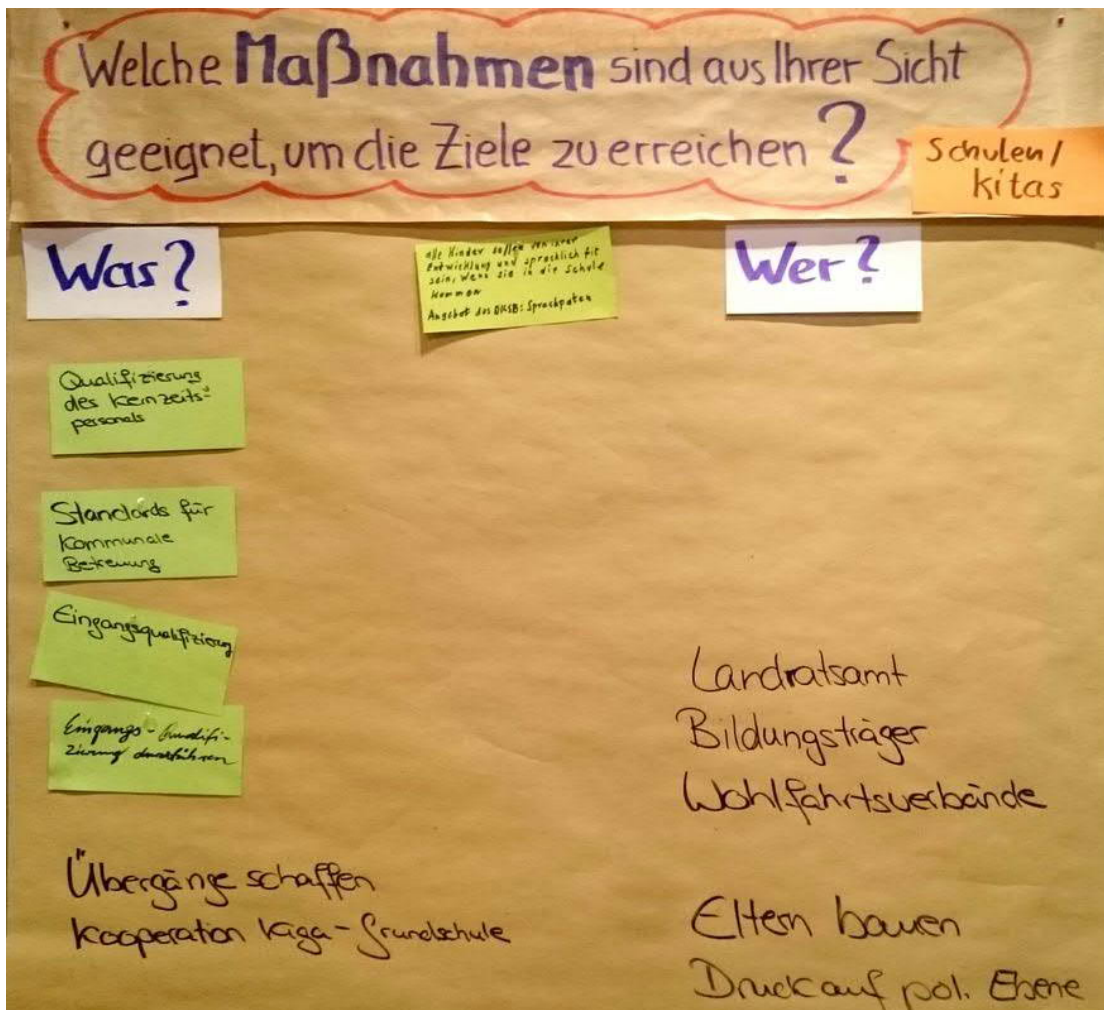 Welche Maßnahmen sind aus Ihrer Sicht
geeignet, um die Ziele zu erreichen?
Schulen/
kitas
Was?
alle Kinder sollen von ihrer
Entwicklung und sprachlich fit
sein, wenn sie in die Schule
kommen
Angebot des DKSB: Sprachpaten
Wer?
Qualifizierung
des Kernzeits-
personals
Standards für
Kommunale
Betreuung
Eingangsqualifizierung
Eingangs-Qualifi-
zierung durchführen
Landratsamt
Bildungsträger
Wohlfahrtsverbände
Übergänge schaffen
Kooperation Kiga-Grundschule
Eltern bauen
Druck auf pol. Ebene